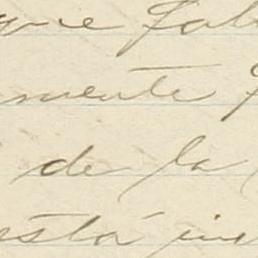 que fal
mente
de la
está in